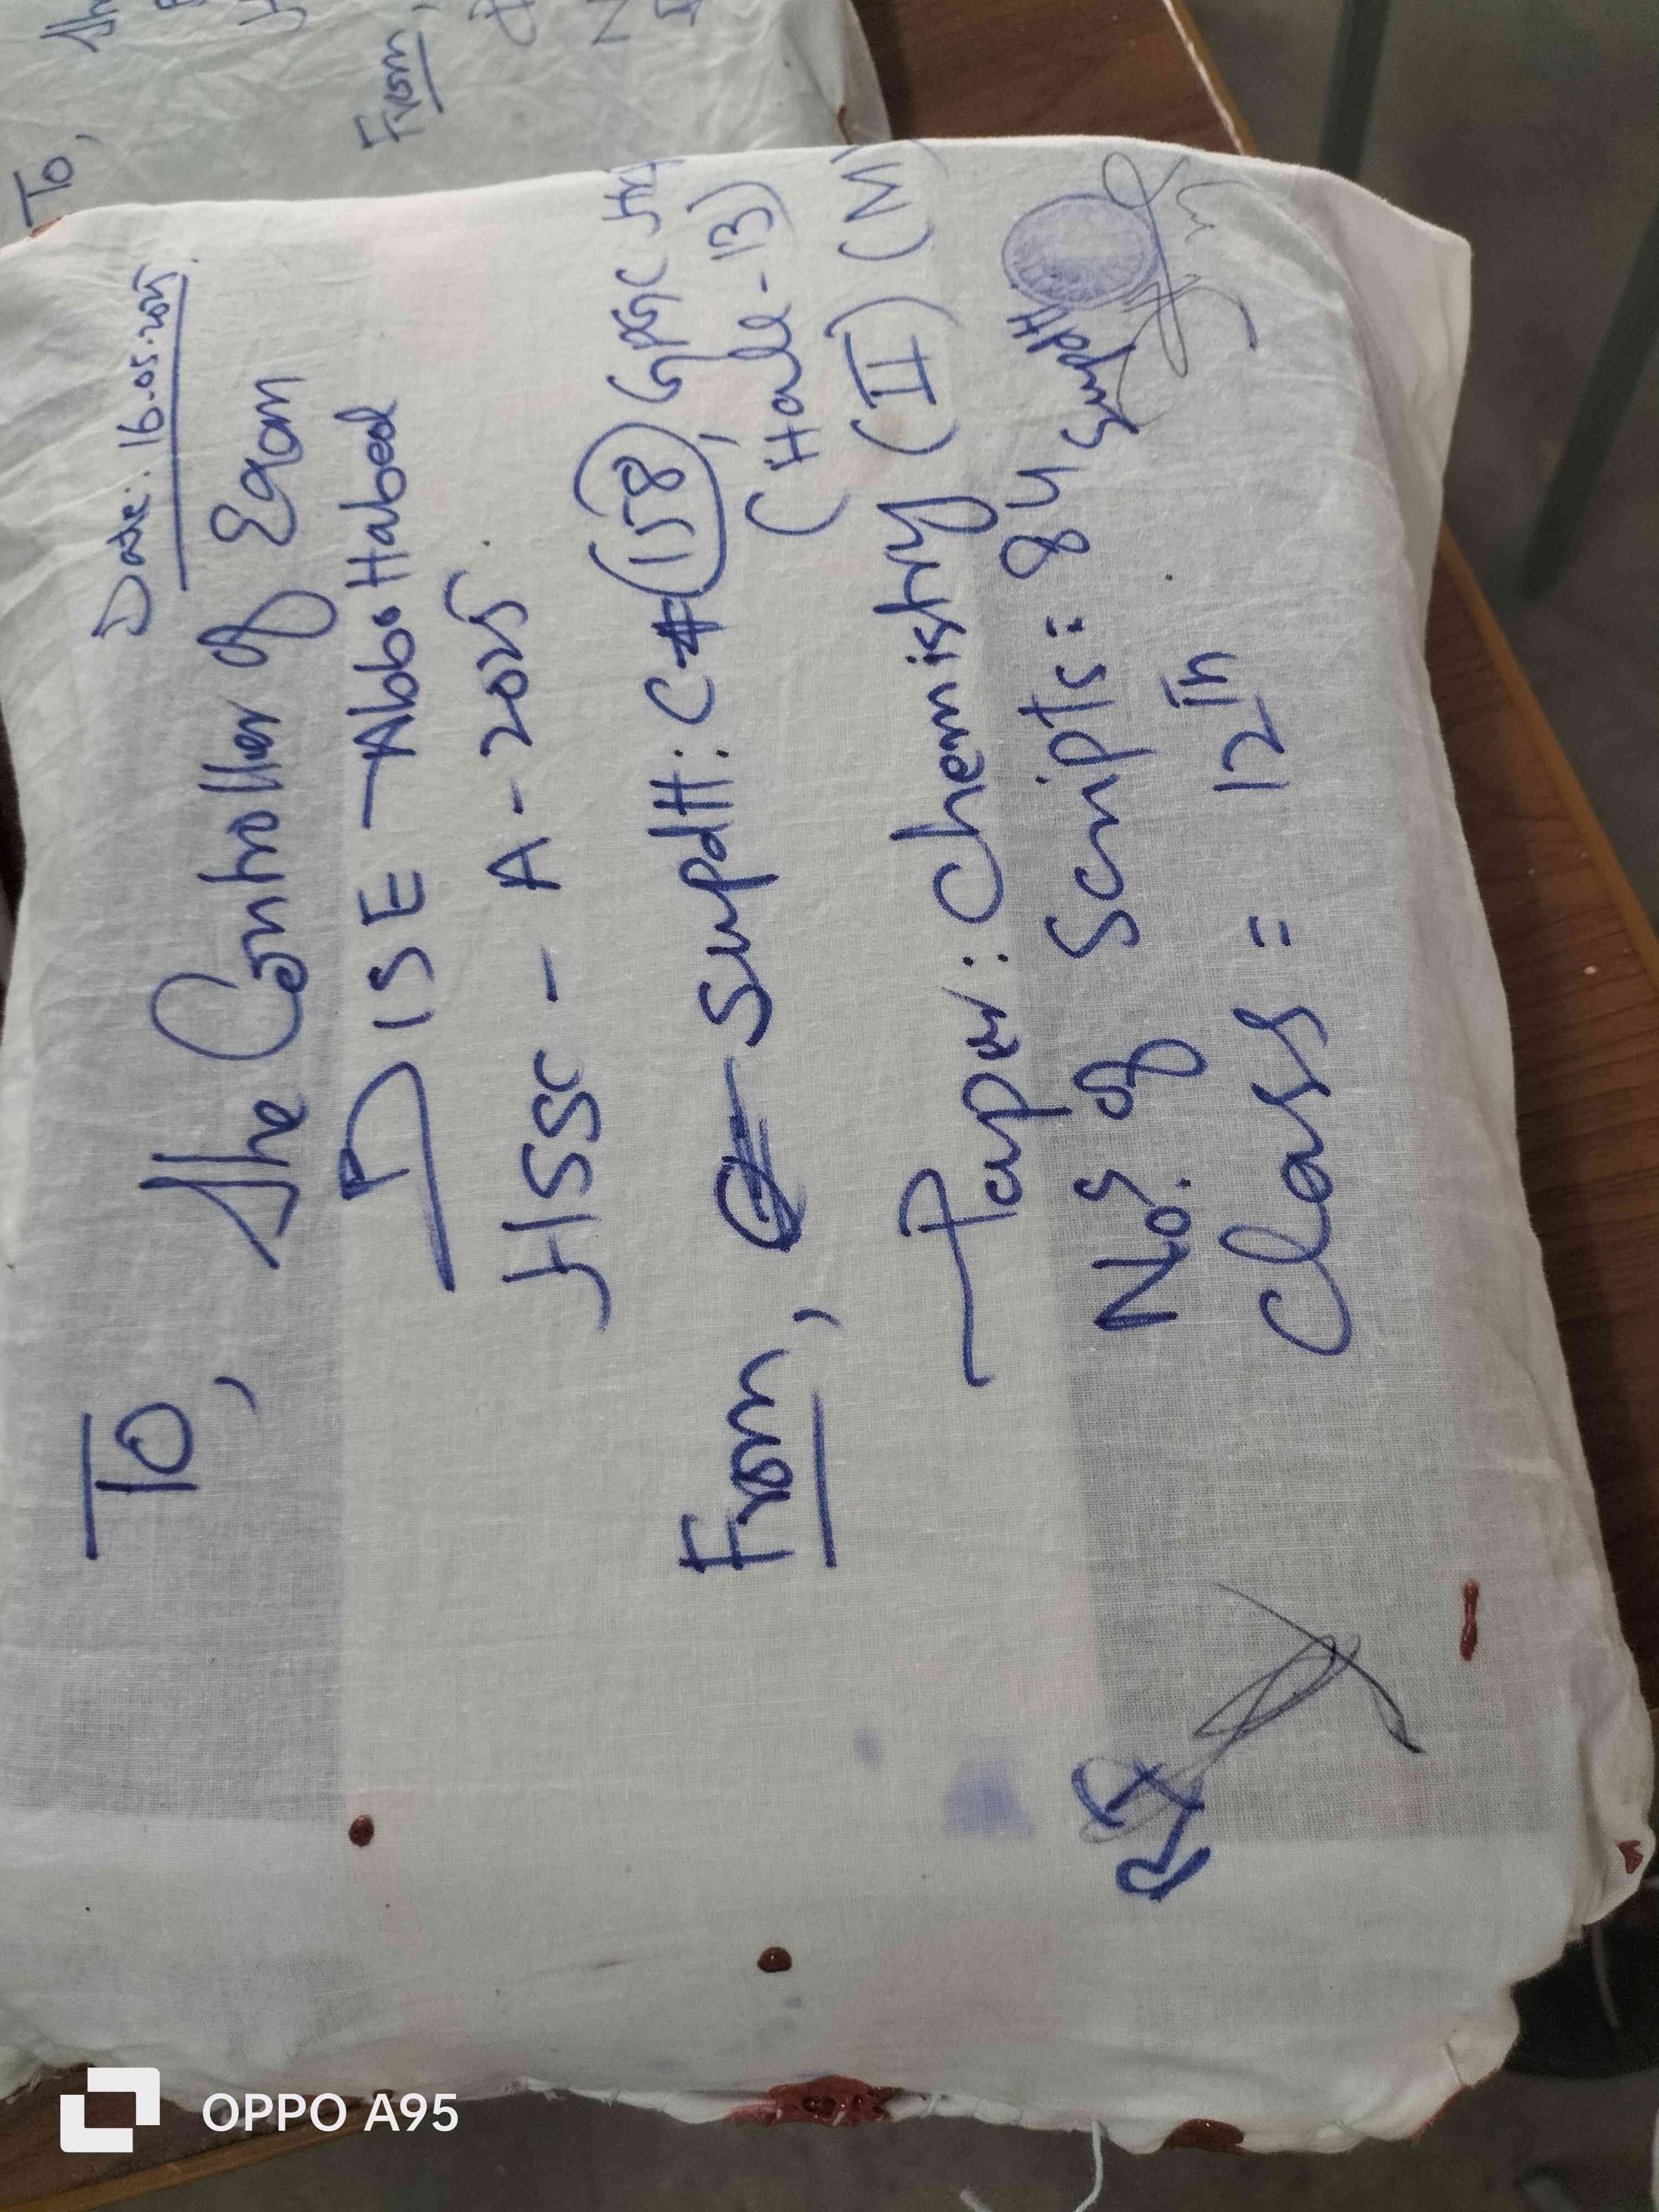 Date: 16.05.2025
To,
The Controller of Exam
BISE Abbottabad
HSSC - A - 2025
From, Supdtt: C#(158) GPGC
(Hale-13)
Paper: Chemistry (II) (M)
No. of Scripts = 84 Supdtt
Class = 12th
To,
From,
OPPO A95